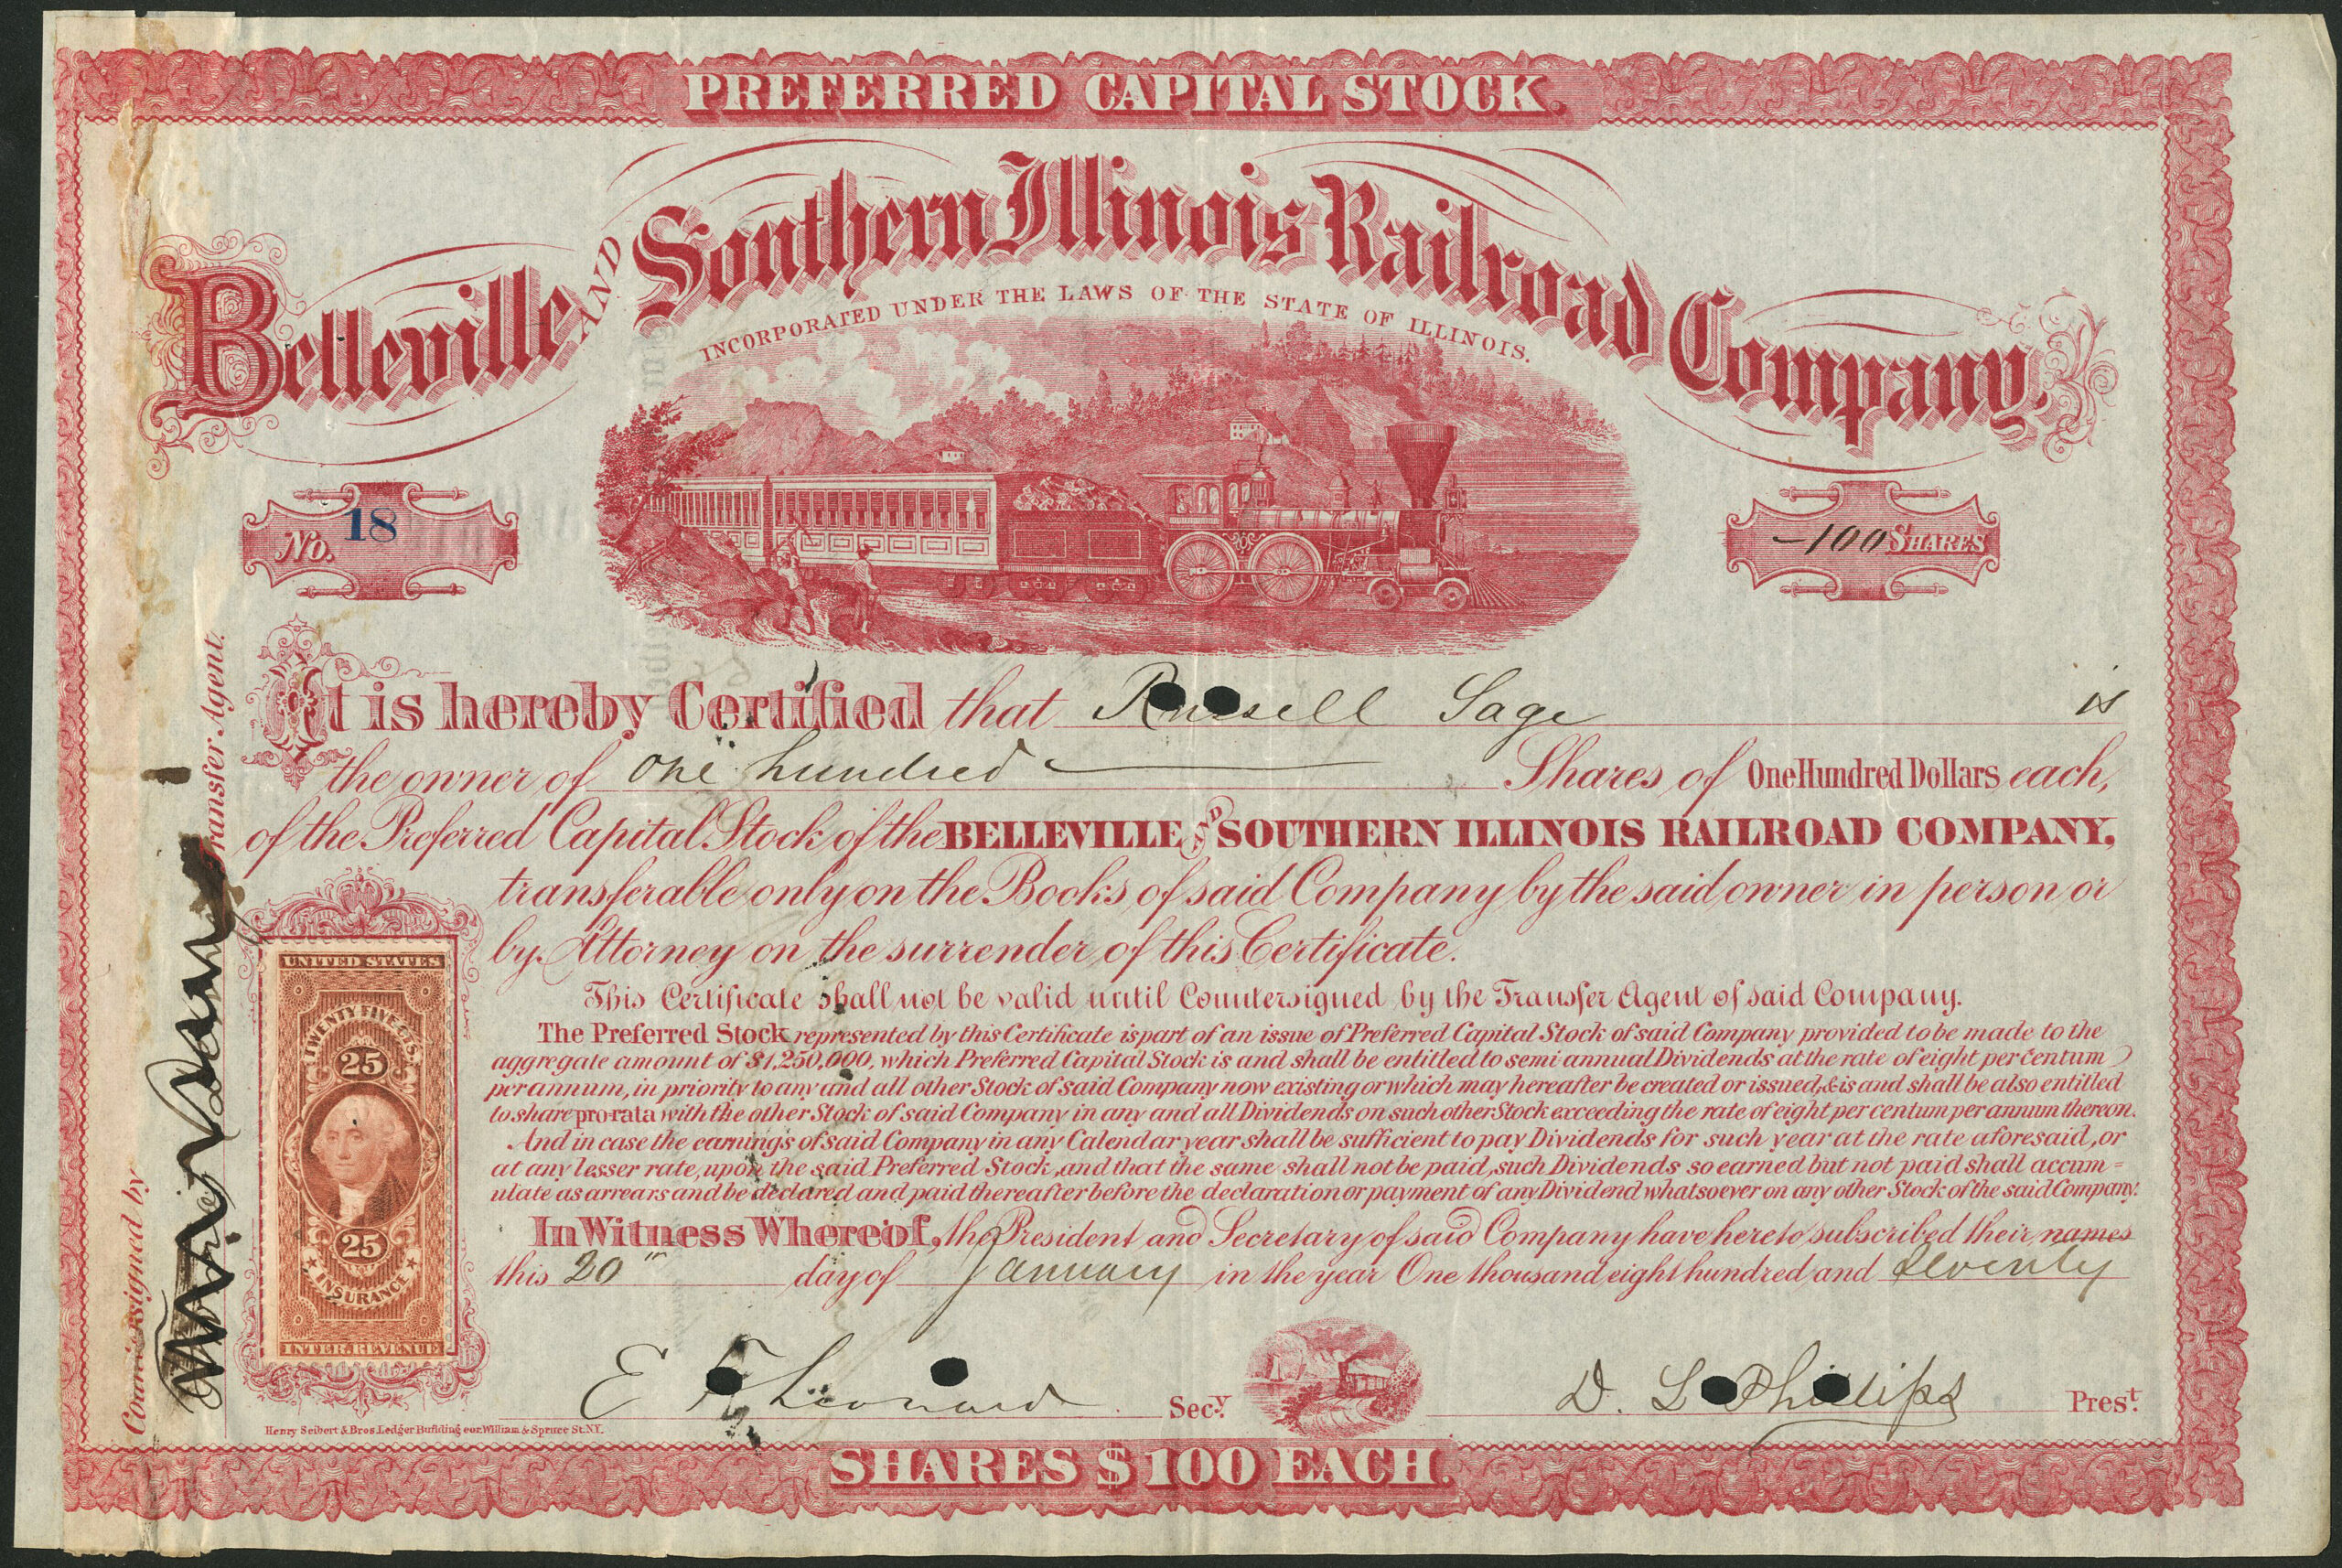 PREFERRED CAPITAL STOCK.
Belleville AND Southern Illinois Railroad Company.
INCORPORATED UNDER THE LAWS OF THE STATE OF ILLINOIS.
No. 18
100 SHARES
It is hereby Certified that Russell Sage is
the owner of one hundred Shares of One Hundred Dollars each,
of the Preferred Capital Stock of the BELLEVILLE AND SOUTHERN ILLINOIS RAILROAD COMPANY,
transferable only on the Books of said Company by the said owner in person or
by Attorney on the surrender of this Certificate.
This Certificate shall not be valid until Countersigned by the Transfer Agent of said Company.
The Preferred Stock represented by this Certificate is part of an issue of Preferred Capital Stock of said Company provided to be made to the
aggregate amount of $1,250,000, which Preferred Capital Stock is and shall be entitled to semi annual Dividends at the rate of eight per centum
per annum, in priority to any and all other Stock of said Company now existing or which may hereafter be created or issued, & is and shall be also entitled
to share pro-rata with the other Stock of said Company in any and all Dividends on such other Stock exceeding the rate of eight per centum per annum thereon.
And in case the earnings of said Company in any Calendar year shall be sufficient to pay Dividends for such year at the rate aforesaid, or
at any lesser rate, upon the said Preferred Stock, and that the same shall not be paid, such Dividends so earned but not paid shall accum=
ulate as arrears and be declared and paid thereafter before the declaration or payment of any Dividend whatsoever on any other Stock of the said Company.
In Witness Whereof, the President and Secretary of said Company have hereto subscribed their names
this 20th day of January in the year One thousand eight hundred and Seventy
E F Leonard Secy.
D. L. Phillips Prest.
Henry Seibert & Bros. Ledger Building cor. William & Spruce St. N.Y.
SHARES $100 EACH.
Countersigned by
Transfer Agent.
UNITED STATES
TWENTY FIVE CTS.
25
25
INSURANCE
INTER. REVENUE